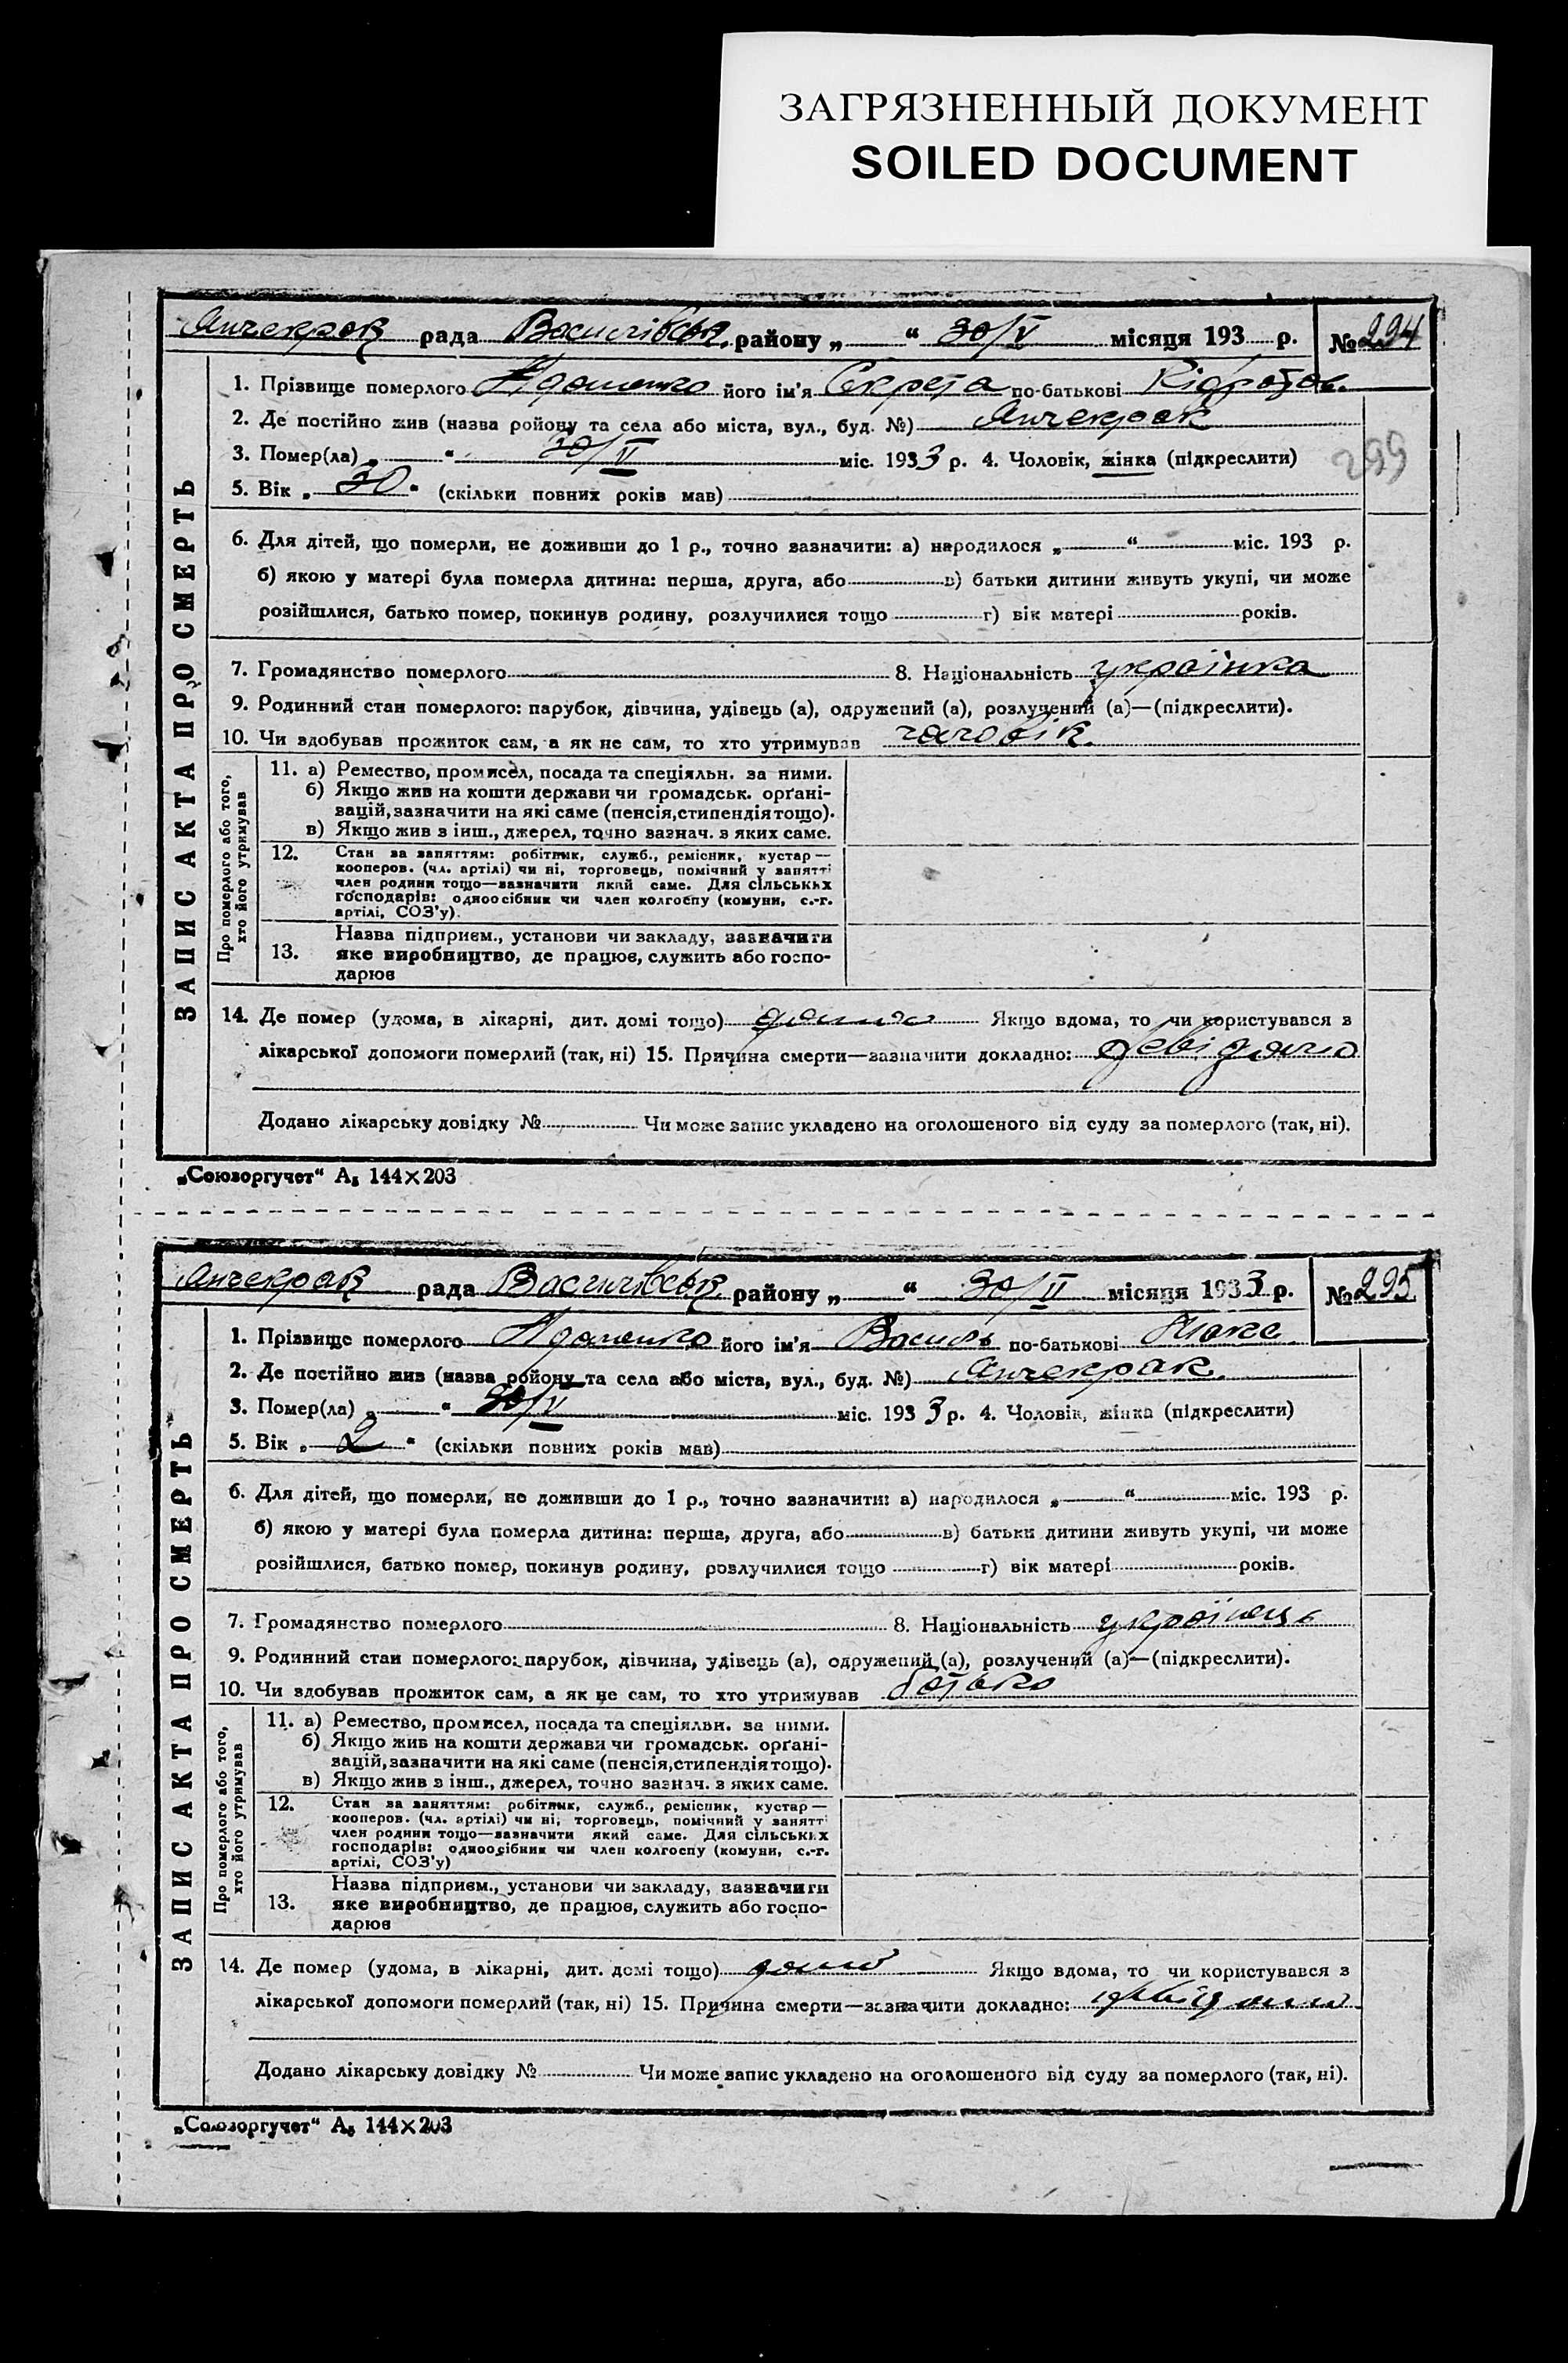 ЗАГРЯЗНЕННЫЙ ДОКУМЕНТ
SOILED DOCUMENT
Янчекрак рада Василівськ. району „ “ 30/V місяця 193 р. № 294
ЗАПИС АКТА ПРО СМЕРТЬ
1. Прізвище померлого Адаменко його ім'я по-батькові
2. Де постійно жив (назва ройону та села або міста, вул., буд. №) Янчекрак
299
3. Помер(ла) „ “ 30/V міс. 1933 р. 4. Чоловік, жінка (підкреслити)
5. Вік „ 30 “ (скільки повних років мав)
6. Для дітей, що померли, не доживши до 1 р., точно зазначити: а) народилося „ “ міс. 193 р.
б) якою у матері була померла дитина: перша, друга, або в) батьки дитини живуть укупі, чи може
розійшлися, батько помер, покинув родину, розлучилися тощо г) вік матері років.
7. Громадянство померлого 8. Національність українка
9. Родинний стан померлого: парубок, дівчина, удівець (а), одружений (а), розлучений (а)—(підкреслити).
10. Чи здобував прожиток сам, а як не сам, то хто утримував чоловік.
Про померлого або того, хто його утримував
11. а) Ремество, промисел, посада та спеціяльн. за ними.
б) Якщо жив на кошти держави чи громадськ. орґані-
зацій, зазначити на які саме (пенсія, стипендія тощо).
в) Якщо жив з інш., джерел, точно зазнач. з яких саме.
12. Стан за заняттям: робітник, служб., ремісник, кустар—
кооперов. (чл. артілі) чи ні, торговець, помічний у занятті
член родини тощо—зазначити який саме. Для сільських
господарів: одноосібник чи член колгоспу (комуни, с.-г.
артілі, СОЗ'у).
13. Назва підприєм., установи чи закладу, зазначити
яке виробництво, де працює, служить або госпо-
дарює
14. Де помер (удома, в лікарні, дит. домі тощо) дома Якщо вдома, то чи користувався з
лікарської допомоги померлий (так, ні) 15. Причина смерти—зазначити докладно:
Додано лікарську довідку № Чи може запис укладено на оголошеного від суду за померлого (так, ні).
„Союзоргучет“ А5 144×203
Янчекрак рада Василівськ. району „ “ 30/V місяця 1933 р. № 295
ЗАПИС АКТА ПРО СМЕРТЬ
1. Прізвище померлого Адаменко його ім'я Василь по-батькові
2. Де постійно жив (назва ройону та села або міста, вул., буд. №) Янчекрак.
3. Помер(ла) „ “ 30/V міс. 1933 р. 4. Чоловік, жінка (підкреслити)
5. Вік „ 2 “ (скільки повних років мав)
6. Для дітей, що померли, не доживши до 1 р., точно зазначити: а) народилося „ “ міс. 193 р.
б) якою у матері була померла дитина: перша, друга, або в) батьки дитини живуть укупі, чи може
розійшлися, батько помер, покинув родину, розлучилися тощо г) вік матері років.
7. Громадянство померлого 8. Національність українець
9. Родинний стан померлого: парубок, дівчина, удівець (а), одружений (а), розлучений (а)—(підкреслити).
10. Чи здобував прожиток сам, а як не сам, то хто утримував батько
Про померлого або того, хто його утримував
11. а) Ремество, промисел, посада та спеціяльн. за ними.
б) Якщо жив на кошти держави чи громадськ. орґані-
зацій, зазначити на які саме (пенсія, стипендія тощо).
в) Якщо жив з інш., джерел, точно зазнач. з яких саме.
12. Стан за заняттям: робітник, служб., ремісник, кустар—
кооперов. (чл. артілі) чи ні, торговець, помічний у занятті
член родини тощо—зазначити який саме. Для сільських
господарів: одноосібник чи член колгоспу (комуни, с.-г.
артілі, СОЗ'у)
13. Назва підприєм., установи чи закладу, зазначити
яке виробництво, де працює, служить або госпо-
дарює
14. Де помер (удома, в лікарні, дит. домі тощо) дома Якщо вдома, то чи користувався з
лікарської допомоги померлий (так, ні) 15. Причина смерти—зазначити докладно:
Додано лікарську довідку № Чи може запис укладено на оголошеного від суду за померлого (так, ні).
„Союзоргучет“ А5 144×203